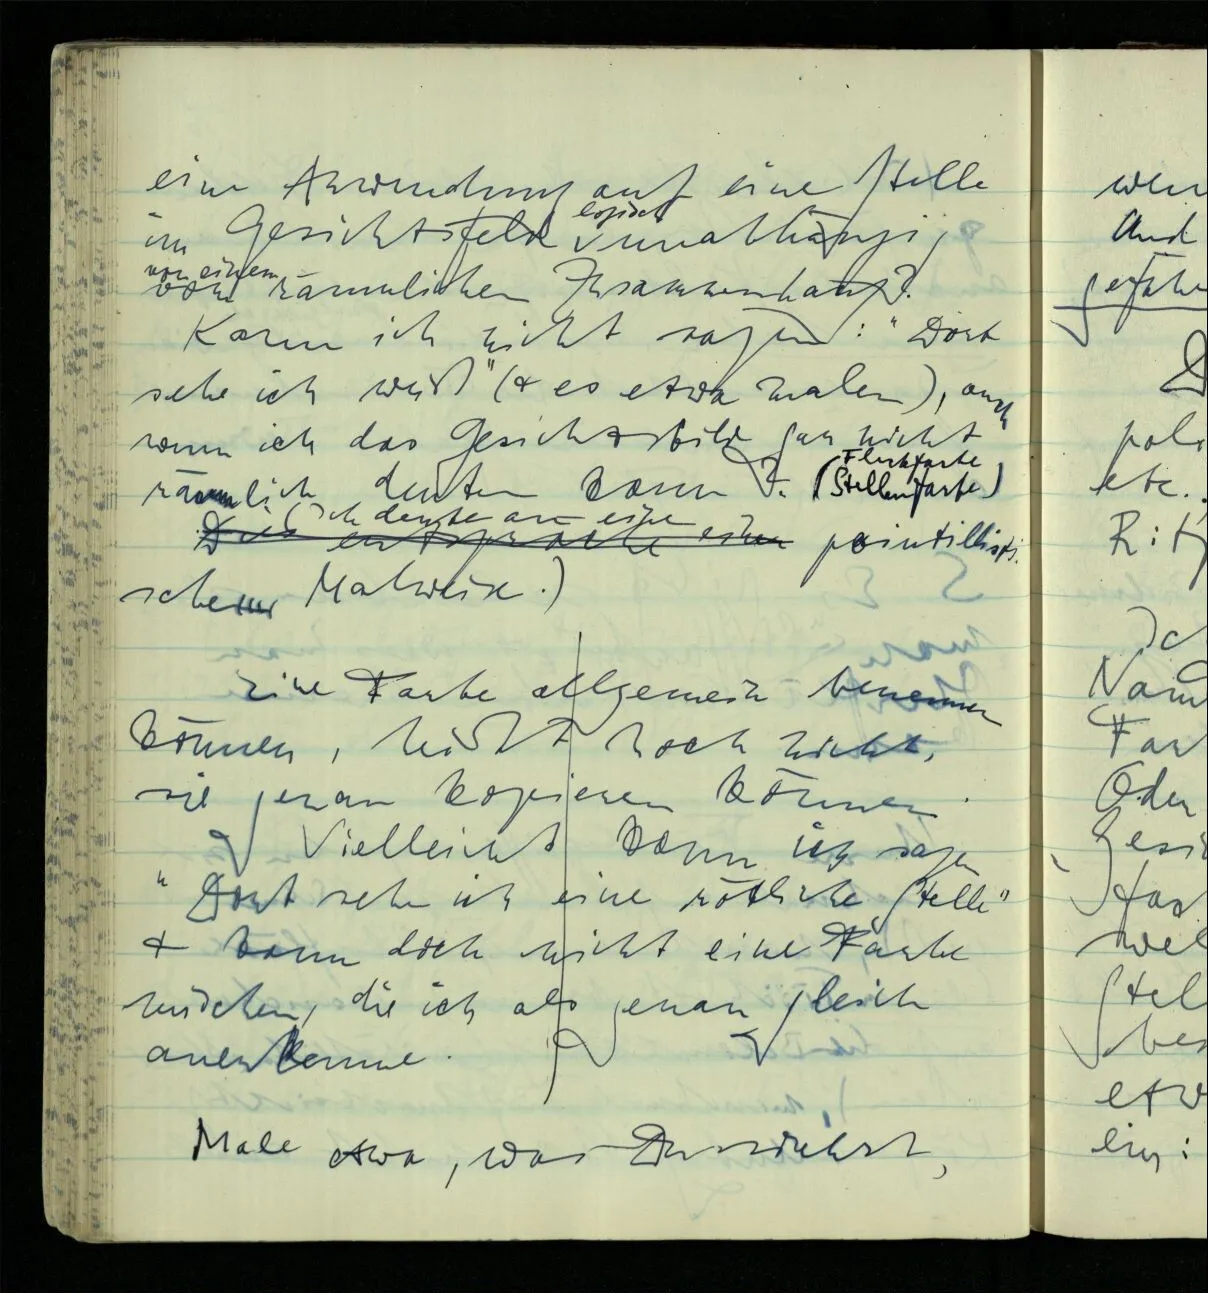 eine Anwendung auf eine Stelle
im Gesichtsfeld logisch unabhängig
von einem
vom räumlichen Zusammenhang?
Kann ich nicht sagen: "Dort
sehe ich weiß" (& es etwa malen), auch
wenn ich das Gesichtsbild gar nicht
räumlich deuten kann? (Fleckfarbe
Stellenfarbe)
(Ich denke an eine
Dies entspräche einer pointillisti-
schen Malweise.)
Eine Farbe allgemein benennen
können, heißt noch nicht,
sie genau kopieren können.
Vielleicht kann ich sagen
"Dort sehe ich eine rötliche Stelle"
& kann doch nicht eine Farbe
mischen, die ich als genau gleich
anerkenne.
Male etwa, was Du siehst,
wen
Und
gefähr
D
etc.
Ich
Nam
Far
Oder
Gesi
wel
Stel
bes
etw
ein: